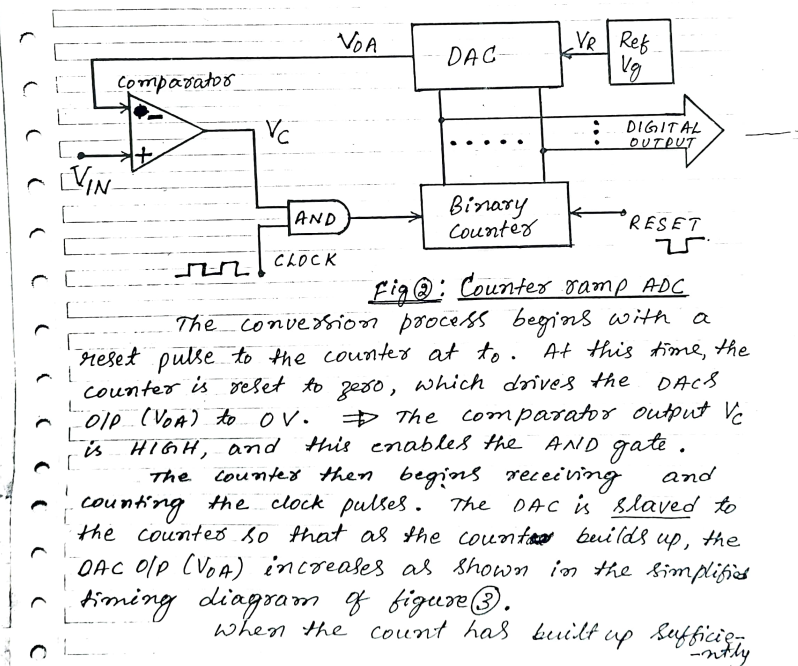 VDA
DAC
VR
Ref
Vg
Comparator
-
+
VC
VIN
DIGITAL
OUTPUT
AND
Binary
Counter
RESET
CLOCK
Fig ②: Counter ramp ADC
The conversion process begins with a
reset pulse to the counter at to. At this time, the
counter is reset to zero, which drives the DACs
O/P (VDA) to 0V. ⇒ The comparator output Vc
is HIGH, and this enables the AND gate.
The counter then begins receiving and
counting the clock pulses. The DAC is slaved to
the counter so that as the count builds up, the
DAC O/P (VDA) increases as shown in the simplified
timing diagram of figure ③.
When the count has built up sufficie-
-ntly